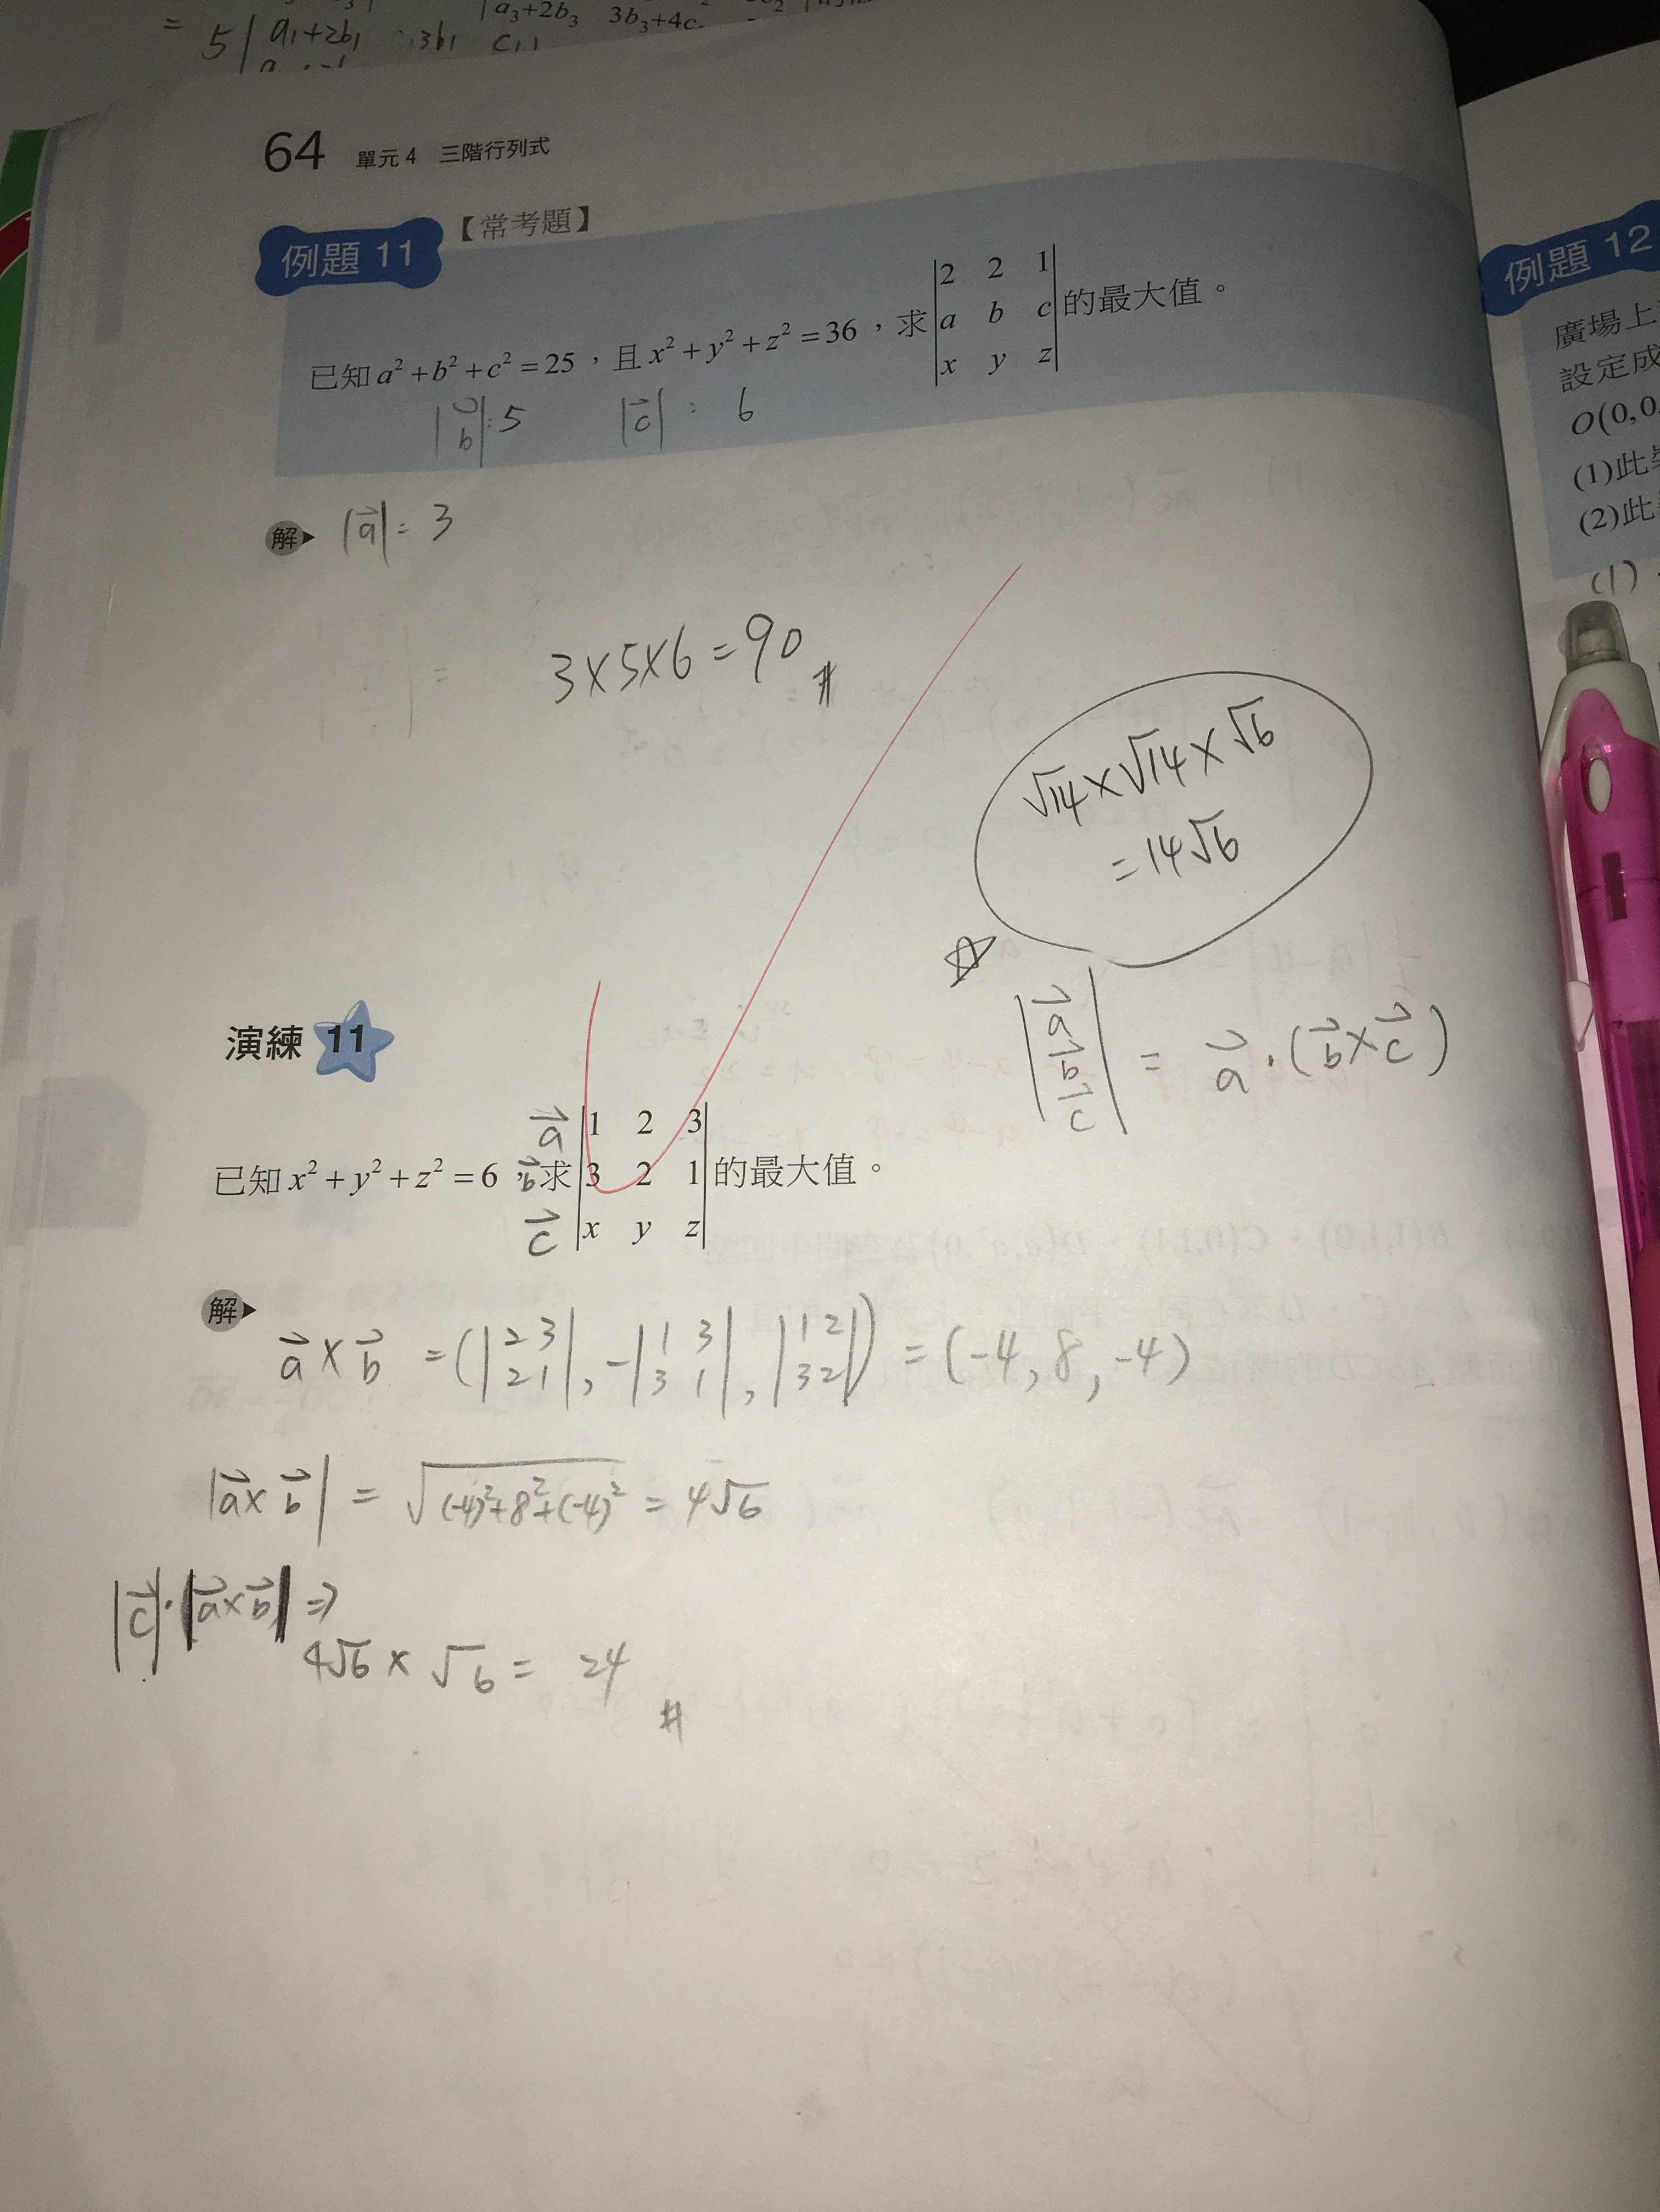 a₃+2b₃ 3b₃+4c
= 5| a₁+2b₁ 3b₁ c₁ |
64 單元 4 三階行列式
例題 11 【常考題】
已知 a²+b²+c²=25，且 x²+y²+z²=36，求
|2 2 1|
|a b c|
|x y z|
的最大值。
|b⃗|:5 |c⃗| : 6
解 |a⃗|= 3
3×5×6=90 #
√14×√14×√6
=14√6
☆
|a⃗ b⃗ c⃗| = a⃗·(b⃗×c⃗)
演練 11
已知 x²+y²+z²=6，求
a⃗ |1 2 3|
b⃗ |3 2 1|
c⃗ |x y z|
的最大值。
解
a⃗×b⃗ =(|2 3|,-|1 3|,|1 2|) = (-4,8,-4)
|2 1| |3 1| |3 2|
|a⃗×b⃗| = √(-4)²+8²+(-4)² = 4√6
|c⃗|·|a⃗×b⃗| ⇒
4√6 × √6 = 24 #
例題 12
廣場上
設定成
O(0,0,
(1)此
(2)此
(1)